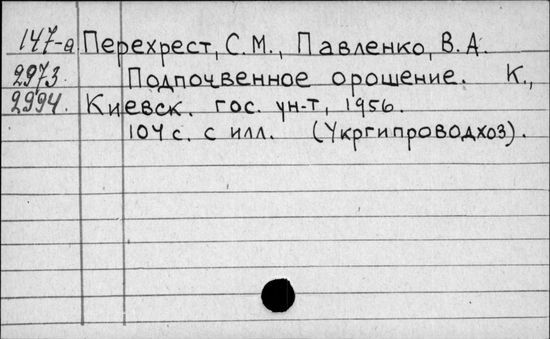 147-а Перехрест, С.М., Павленко, В.А.
2973. Подпочвенное орошение. К.,
2994. Киевск. гос. ун-т, 1956.
104 с. с илл. (Укргипроводхоз).